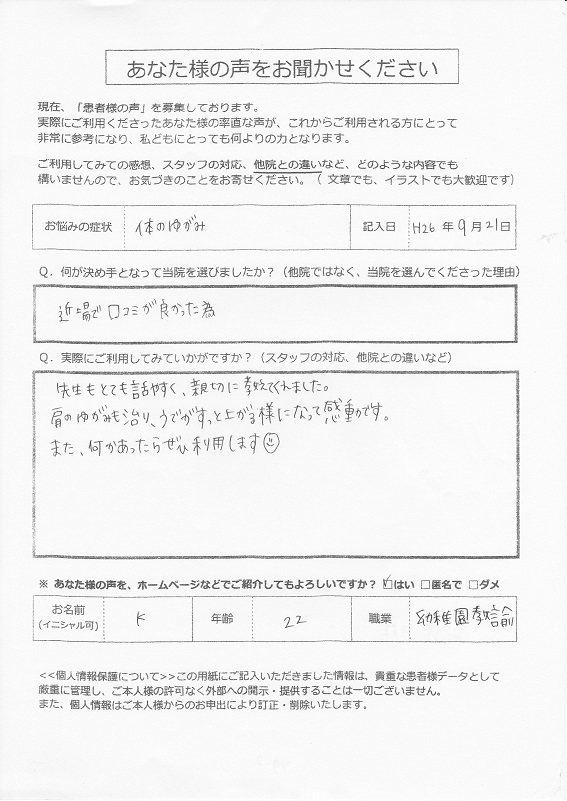 あなた様の声をお聞かせください
現在、「患者様の声」を募集しております。
実際にご利用くださったあなた様の率直な声が、これからご利用される方にとって
非常に参考になり、私どもにとっても何よりの力となります。
ご利用してみての感想、スタッフの対応、他院との違いなど、どのような内容でも
構いませんので、お気づきのことをお寄せください。（ 文章でも、イラストでも大歓迎です）
お悩みの症状 体のゆがみ 記入日 H26 年 9 月 21 日
Q．何が決め手となって当院を選びましたか？（他院ではなく、当院を選んでくださった理由）
近場で口コミが良かった為
Q．実際にご利用してみていかがですか？（スタッフの対応、他院との違いなど）
先生もとても話やすく、親切に教えてくれました。
肩のゆがみも治り、うでがすっと上がる様になって感動です。
また、何かあったらぜひ利用します
※ あなた様の声を、ホームページなどでご紹介してもよろしいですか？ ☑はい □匿名で □ダメ
お名前 K 年齢 22 職業 幼稚園教諭
(イニシャル可)
<<個人情報保護について>>この用紙にご記入いただきました情報は、貴重な患者様データとして
厳重に管理し、ご本人様の許可なく外部への開示・提供することは一切ございません。
また、個人情報はご本人様からのお申出により訂正・削除いたします。